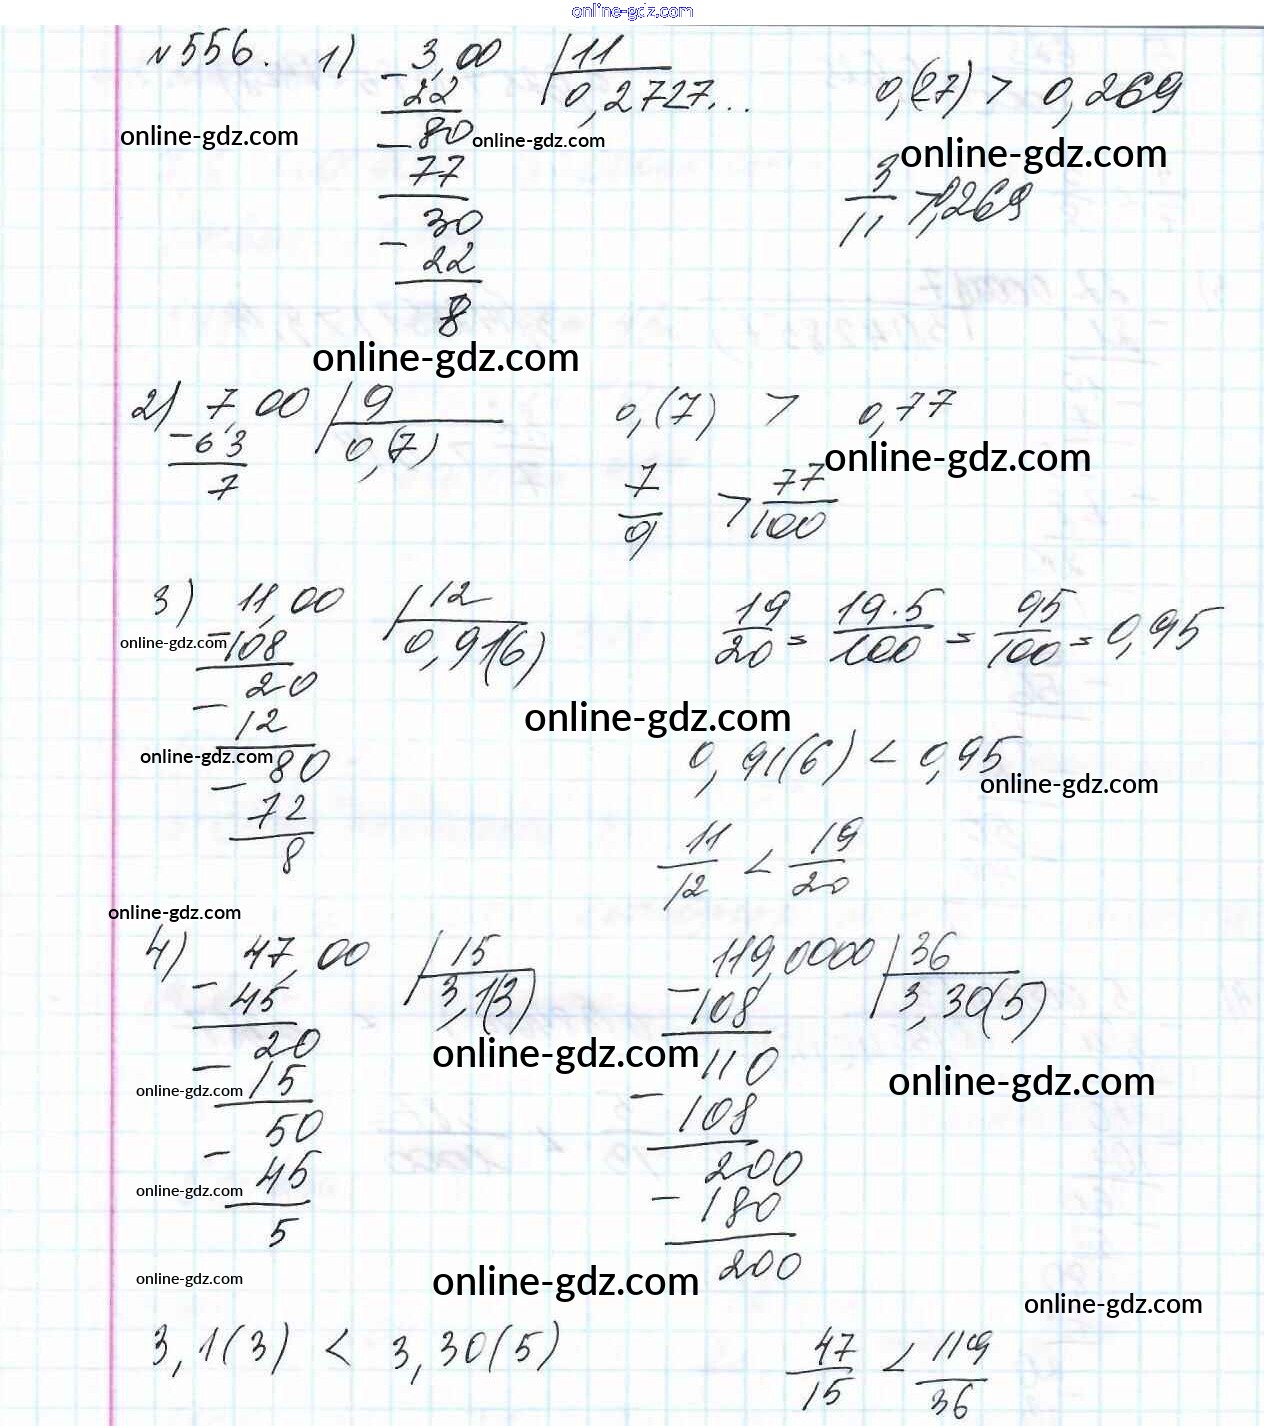 online-gdz.com
№556. 1) 3,00 | 11
- 22 0,2727...
0,(27) > 0,269
online-gdz.com
- 80
online-gdz.com
online-gdz.com
77
3/11 > 0,269
30
- 22
8
online-gdz.com
2) 7,00 | 9
- 63 0,(7)
7
0,(7) > 0,77
online-gdz.com
7/9 > 77/100
3) 11,00 | 12
- 108 0,91(6)
online-gdz.com
19/20 = 19·5/100 = 95/100 = 0,95
20
- 12
online-gdz.com
online-gdz.com
80
- 72
8
0,91(6) < 0,95
online-gdz.com
11/12 < 19/20
online-gdz.com
4) 47,00 | 15
- 45 3,1(3)
20
- 15
online-gdz.com
online-gdz.com
50
- 45
online-gdz.com
5
119,0000 | 36
- 108 3,30(5)
110
online-gdz.com
- 108
200
- 180
200
online-gdz.com
online-gdz.com
online-gdz.com
3,1(3) < 3,30(5)
47/15 < 119/36